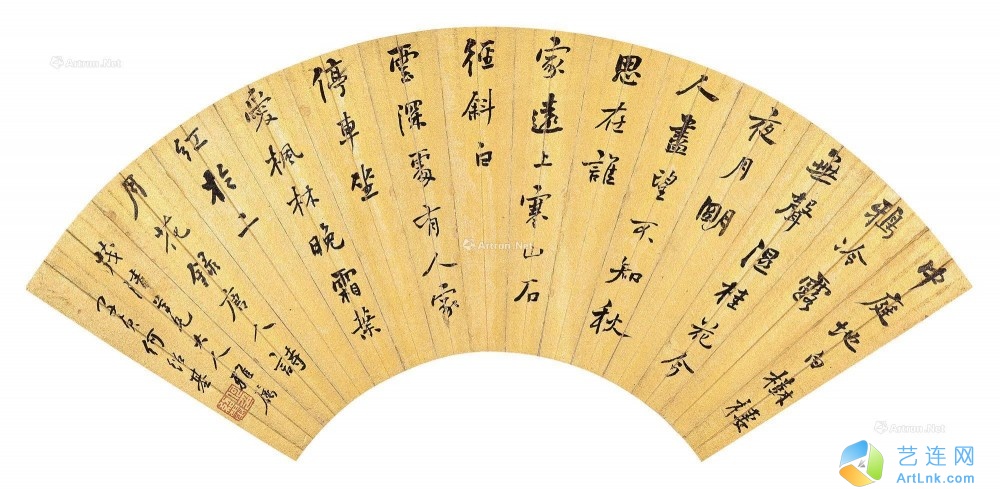 中庭地白樹棲
鴉冷露
無聲湿桂花今
夜月明
人盡望不知秋
思在誰
家遠上寒山石
徑斜白
雲深處有人家
停車坐
愛楓林晚霜葉
紅於二
月花錄唐人詩
茂清大人雅屬
子貞何紹基
Artron.Net
Artron.Net
Artron.Net
Artron.Net
艺连网
ArtLnk.com